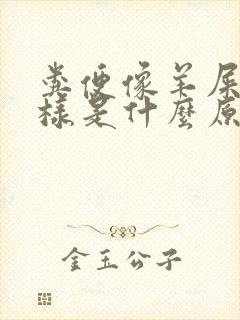 粪便像羊屎
樣是什麼原
金玉公子